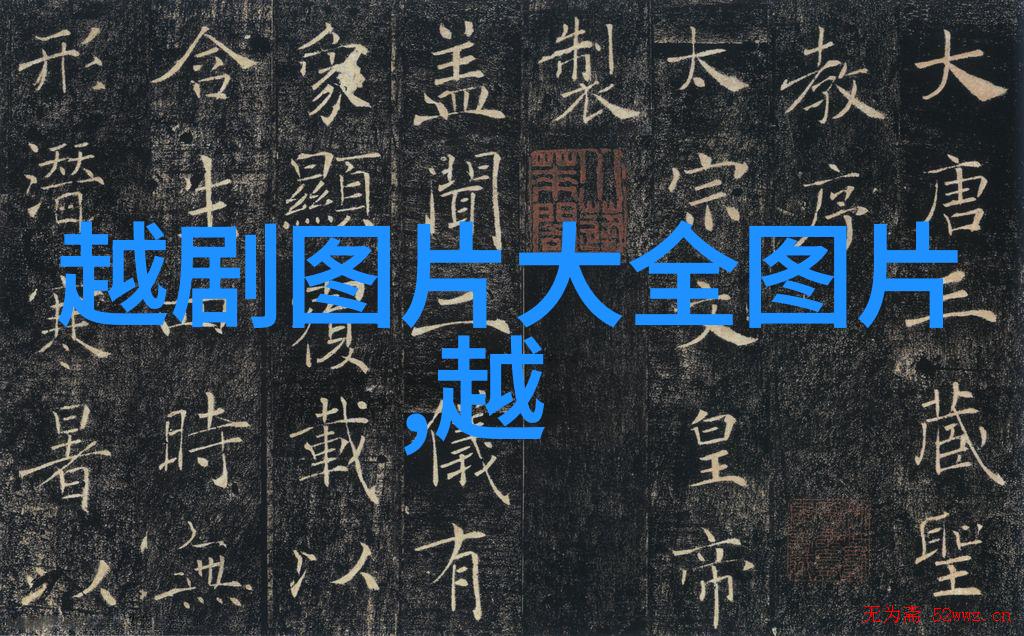 越剧图片大全图片
,越
大唐三藏聖
教序
太宗文皇帝
製
盖聞二儀有
象顯覆載以
含生四時無
形潛寒暑以
无为斋 52wwz.cn